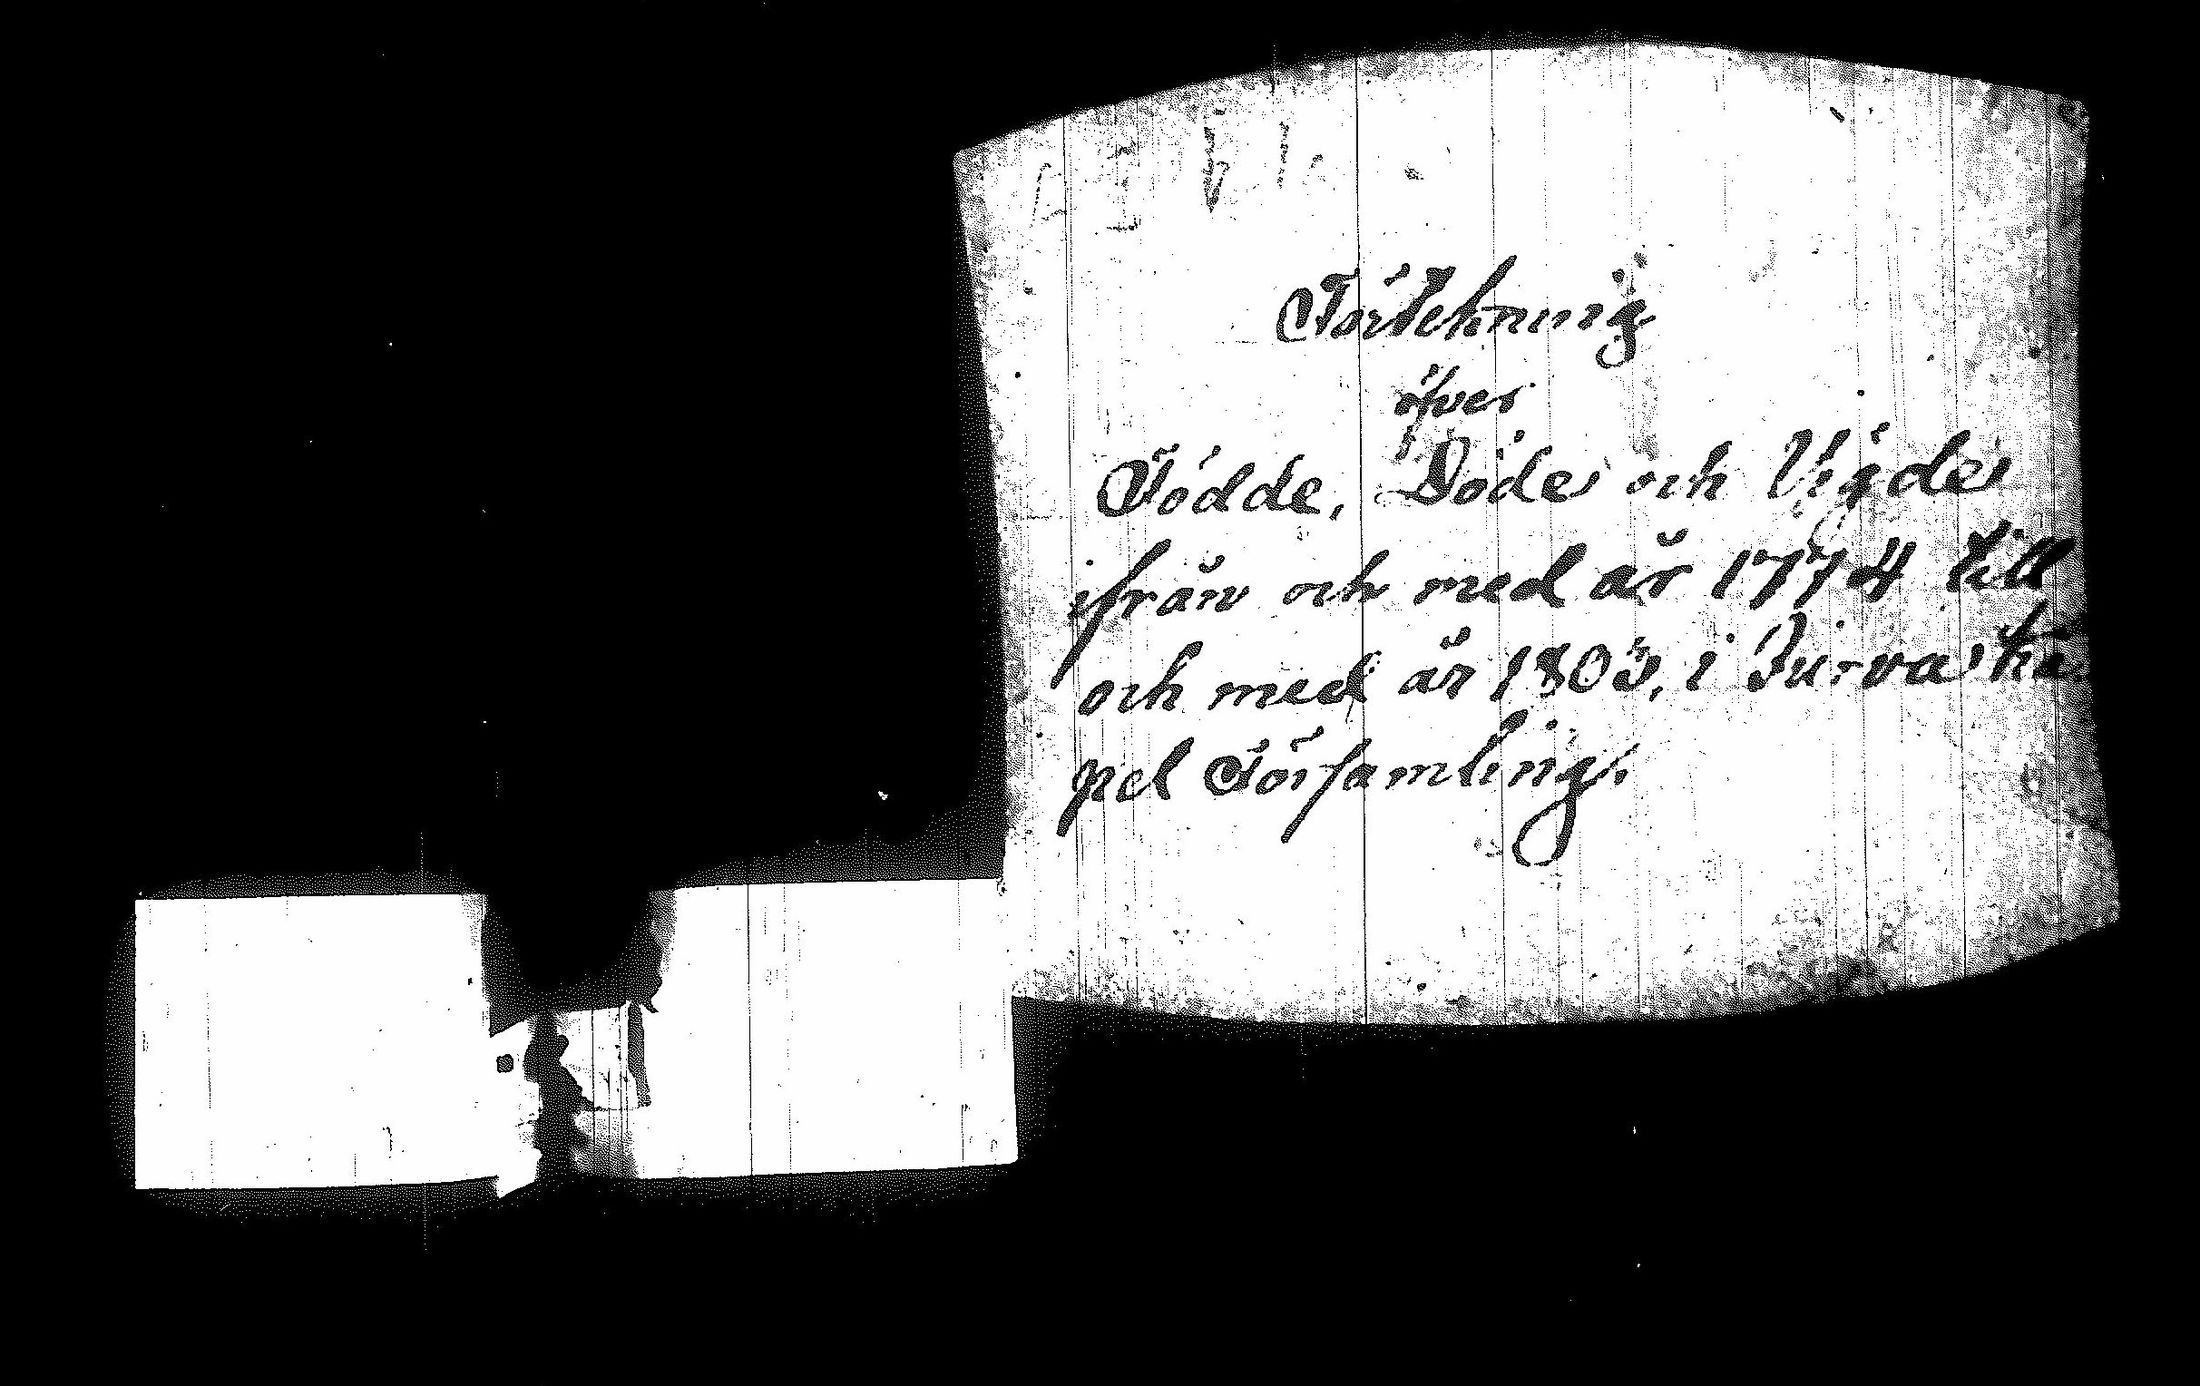 Förtekning
öfver
Födde, Döde och Vigde
ifrån och med år 1774 till
och med år 1803, i Jurva ka-
pel Församling.